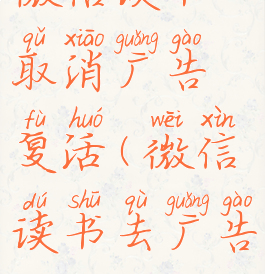 qǔ xiāo guǎng gào
取消广告
fù huó wēi xìn
复活(微信
dú shū qù guǎng gào
读书去广告